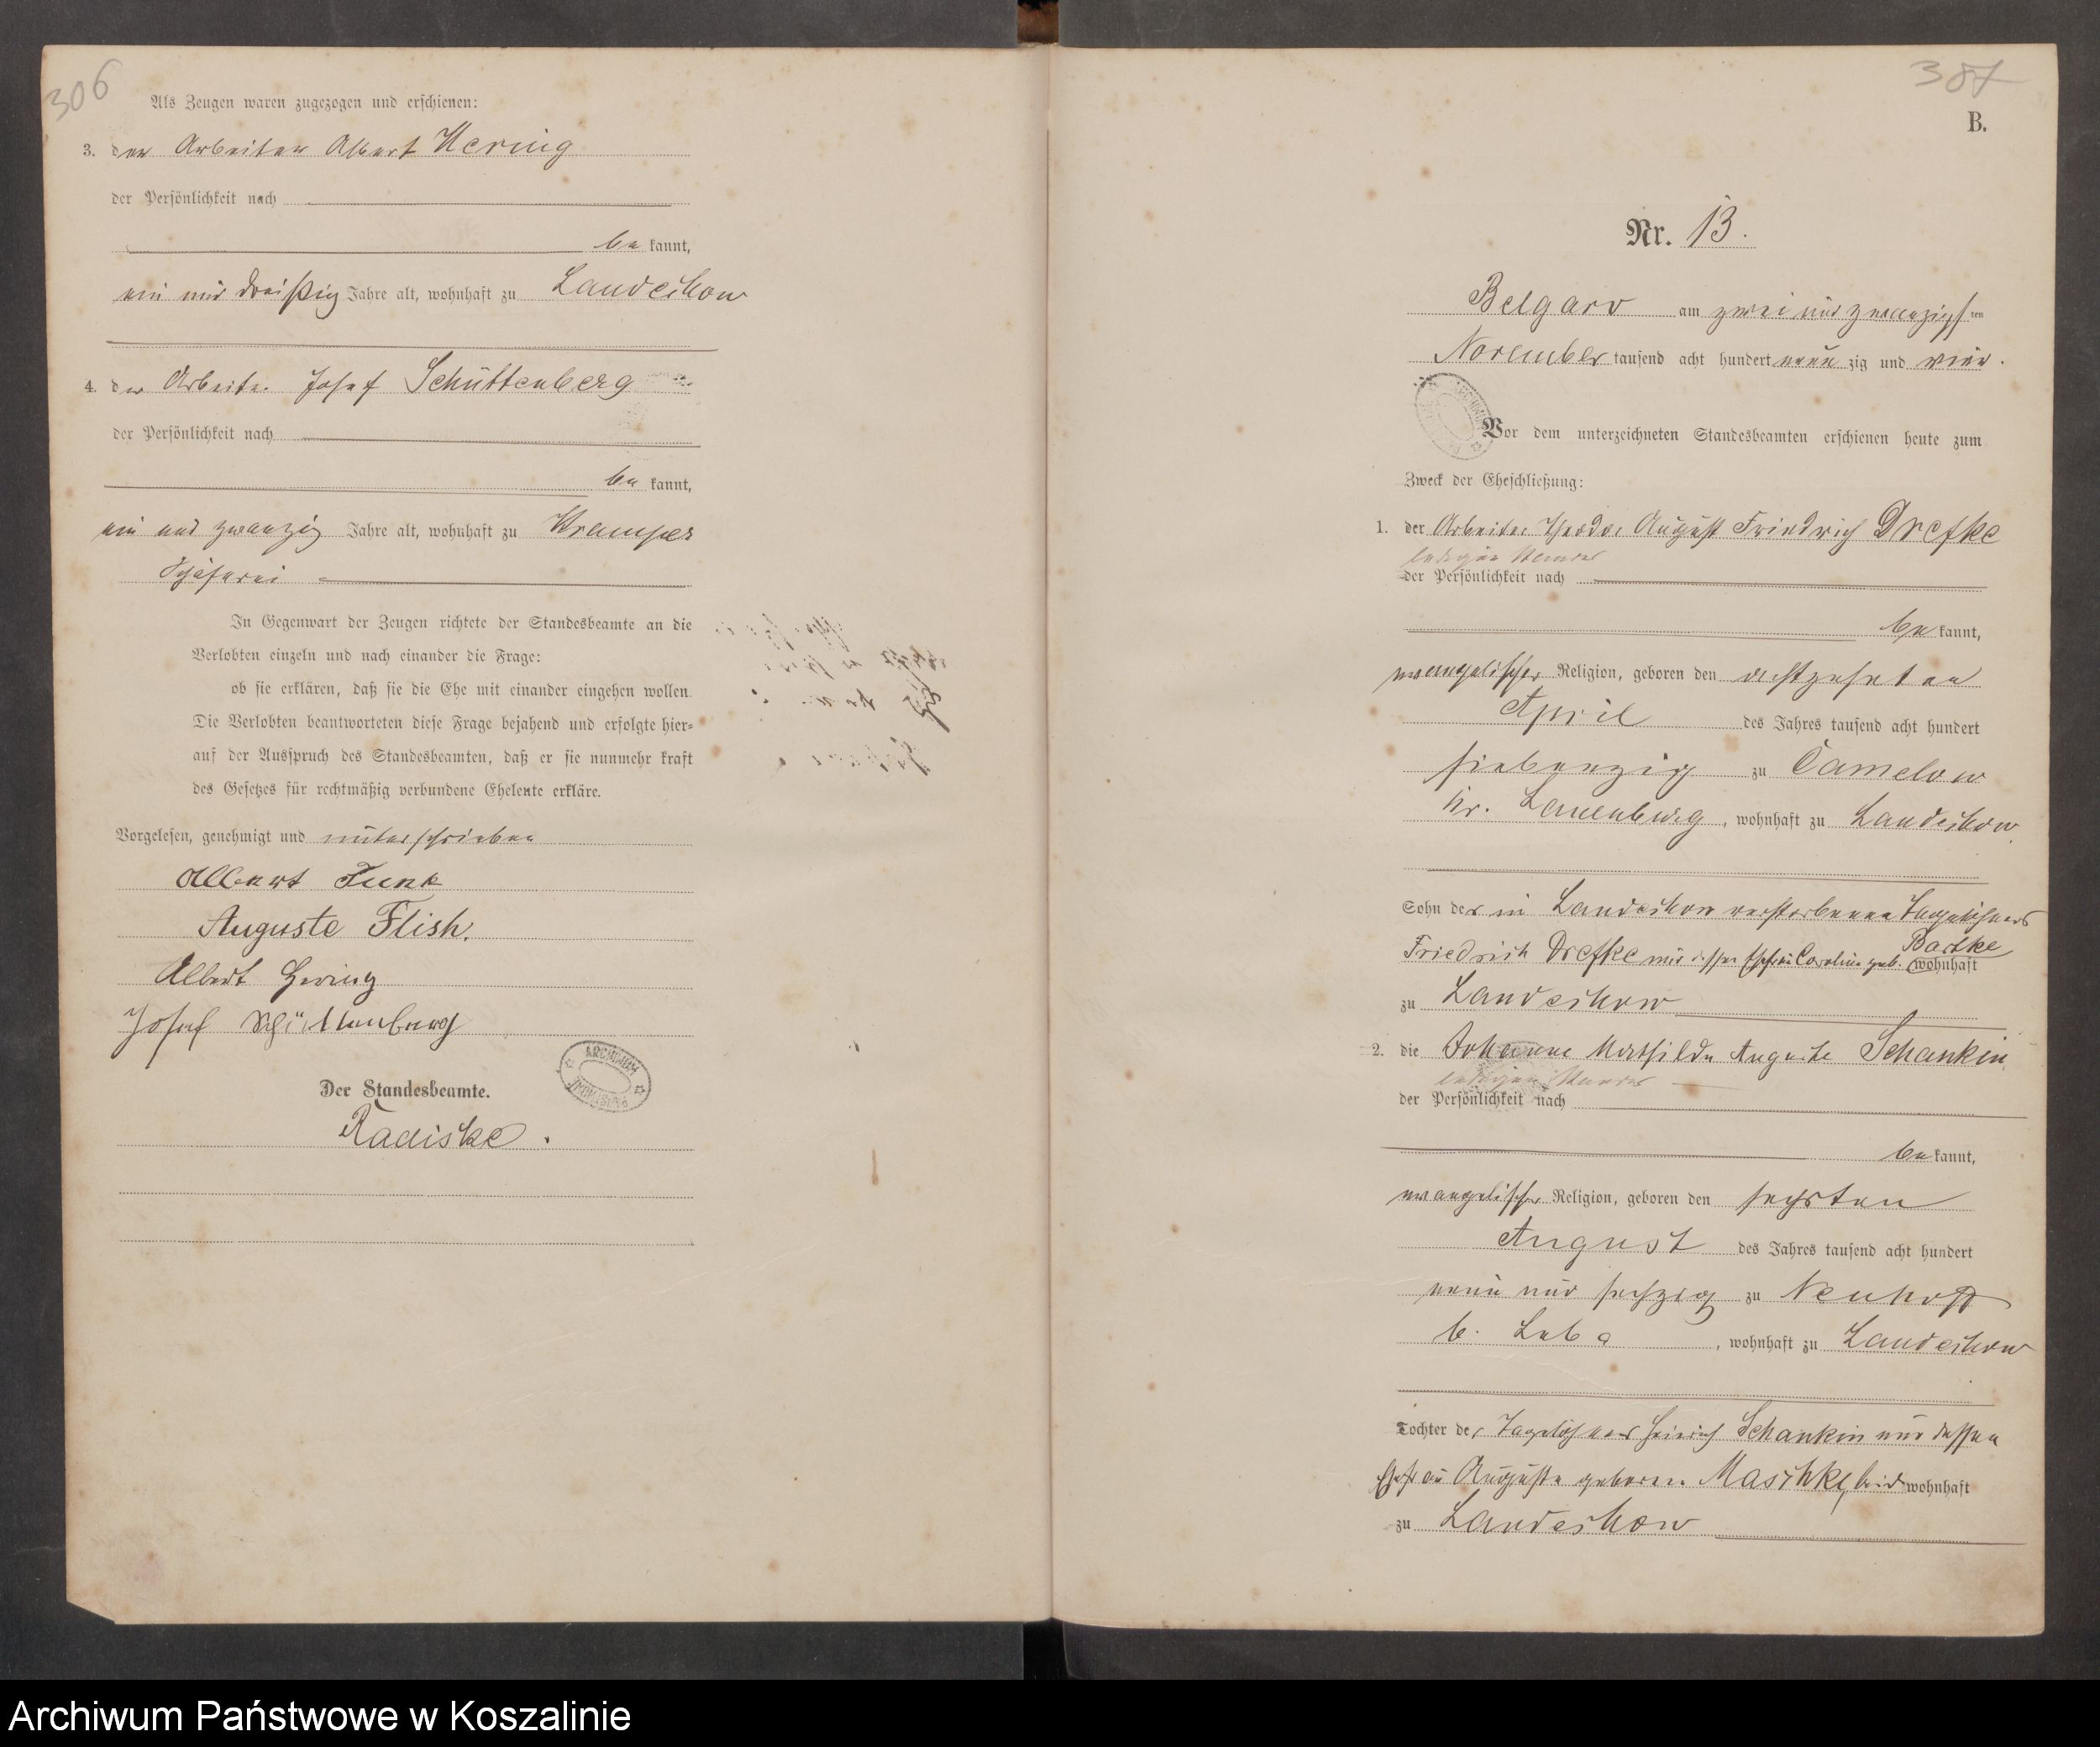 306
Als Zeugen waren zugezogen und erschienen:
3. der Arbeiter Albert Hering
der Persönlichkeit nach
be kannt,
ein und dreißig Jahre alt, wohnhaft zu Landechow
4. der Arbeiter Josef Schüttenberg
der Persönlichkeit nach
be kannt,
ein und zwanzig Jahre alt, wohnhaft zu Krampe
Schäferei
In Gegenwart der Zeugen richtete der Standesbeamte an die
Verlobten einzeln und nach einander die Frage:
ob sie erklären, daß sie die Ehe mit einander eingehen wollen.
Die Verlobten beantworteten diese Frage bejahend und erfolgte hier-
auf der Ausspruch des Standesbeamten, daß er sie nunmehr kraft
des Gesetzes für rechtmäßig verbundene Eheleute erkläre.
Vorgelesen, genehmigt und unterschrieben
Albert Funk
Auguste Flish.
Albert Hering
Josef Schüttenberg
Der Standesbeamte.
Radiske.
307
B.
Nr. 13.
Belgard am zwei und zwanzigsten
November tausend acht hundert neun zig und vier.
Vor dem unterzeichneten Standesbeamten erschienen heute zum
Zweck der Eheschließung:
1. der Arbeiter Theodor August Friedrich Drefke
ledigen Standes
der Persönlichkeit nach
be kannt,
evangelischer Religion, geboren den achtzehnten
April des Jahres tausend acht hundert
siebenzig zu Camelow
Kr. Lauenburg, wohnhaft zu Landechow
Sohn des in Landechow verstorbenen Tagelöhners
Friedrich Drefke und dessen Ehefrau Caroline geb. Bartke wohnhaft
zu Landechow
2. die Johanne Mathilde Auguste Schankin
ledigen Standes
der Persönlichkeit nach
be kannt,
evangelischer Religion, geboren den sechsten
August des Jahres tausend acht hundert
neun und sechzig zu Neuhoff
b. Leba, wohnhaft zu Landechow
Tochter des Tagelöhners Heinrich Schankin und dessen
Ehefrau Auguste geborene Maschke, beide wohnhaft
zu Landechow
Archiwum Państwowe w Koszalinie